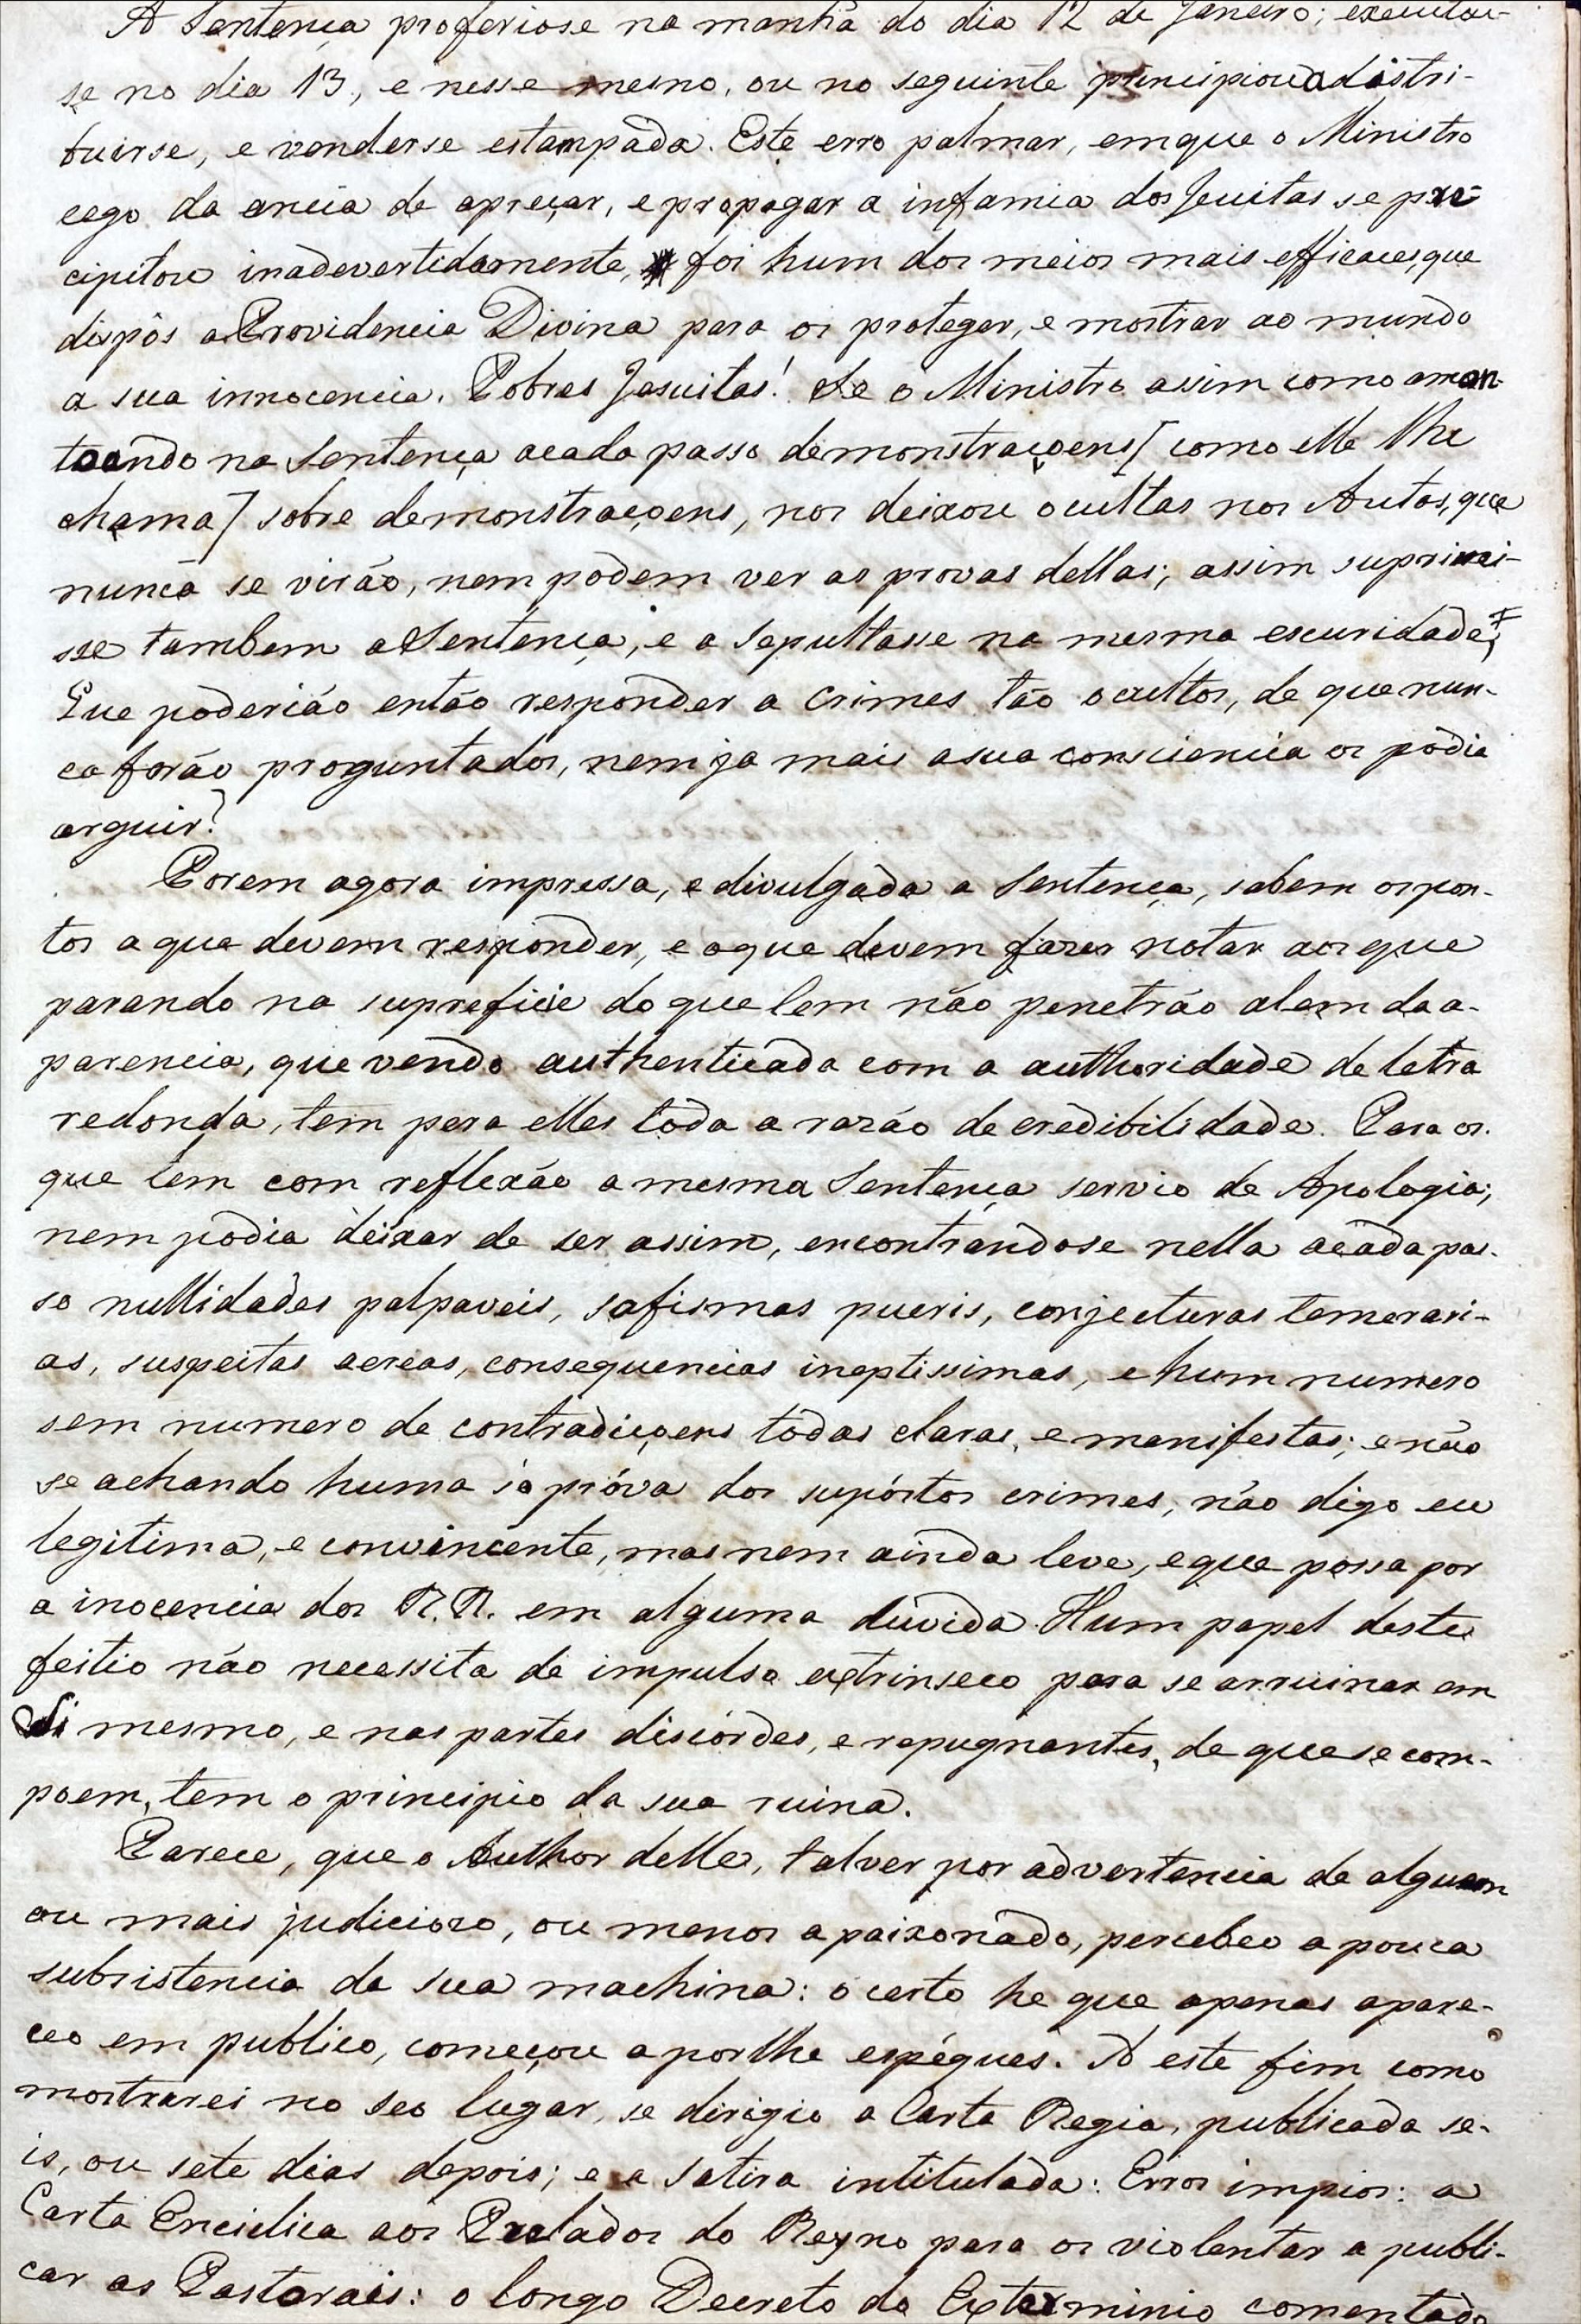 A Sentença proferiose na manhã do dia 12 de Janeiro; executou-
se no dia 13, e nesse mesmo, ou no seguinte principiou a distri-
buirse, e venderse estampada. Este erro palmar, em que o Ministro
cego da ancia de apreçar, e propagar a infamia dos Jesuitas se pre-
cipitou inadevertidamente, foi hum dos meios mais efficaces, que
dispôs a Providencia Divina para os proteger, e mostrar ao mundo
a sua innocencia. Pobres Jesuitas! Se o Ministro assim como amon-
toando na Sentença acada passo demonstraçoens [como elle lhe
chama] sobre demonstraçoens, nos deixou ocultas nos Autos, que
nunca se virão, nem podem ver as provas dellas; assim suprimi-
sse tambem a Sentença, e a sepultasse na mesma escuridade;
Que poderião então responder a crimes tão ocultos, de que nun-
ca forão proguntados, nem ja mais a sua consciencia os podia
arguir?
Porem agora impressa, e divulgada a Sentença, sabem os pon-
tos a que devem responder, e oque devem fazer notar aos que
parando na supreficie do que lem não penetrão alem da a-
parencia, que vendo authenticada com a authoridade de letra
redonda, tem pera elles toda a razão de credibilidade. Para os
que lem com reflexão a mesma Sentença servio de Apologia;
nem podia deixar de ser assim, encontrandose nella acada pas-
so nullidades palpaveis, sofismas pueris, conjecturas temerari-
as, suspeitas aereas, consequencias ineptissimas, e hum numero
sem numero de contradiçoens todas claras, e manifestas; e não
se achando huma só próva dos supóstos crimes, não digo eu
legitima, e convincente, mas nem ainda leve, e que possa por
a inocencia dos R.R. em alguma duvida. Hum papel deste
feitio não necessita de impulso extrinseco para se arruinar em
Si mesmo, e nas partes discórdes, e repugnantes, de que se com-
poem, tem o principio da sua ruina.
Parece, que o Author delle, talvez por advertencia de alguem
ou mais judiciozo, ou menos apaixonado, percebeo a pouca
subsistencia da sua machina: o certo he que apenas apare-
ceo em publico, começou a porlhe espéques. A este fim como
mostrarei no seo lugar, se dirigio a Carta Regia, publicada se-
is, ou sete dias depois; e a satira intitulada: Erros impios: a
Carta Encíclica aos Prelados do Reyno para os violentar a publi-
car as Pastorais: o longo Decreto do Exterminio comentado